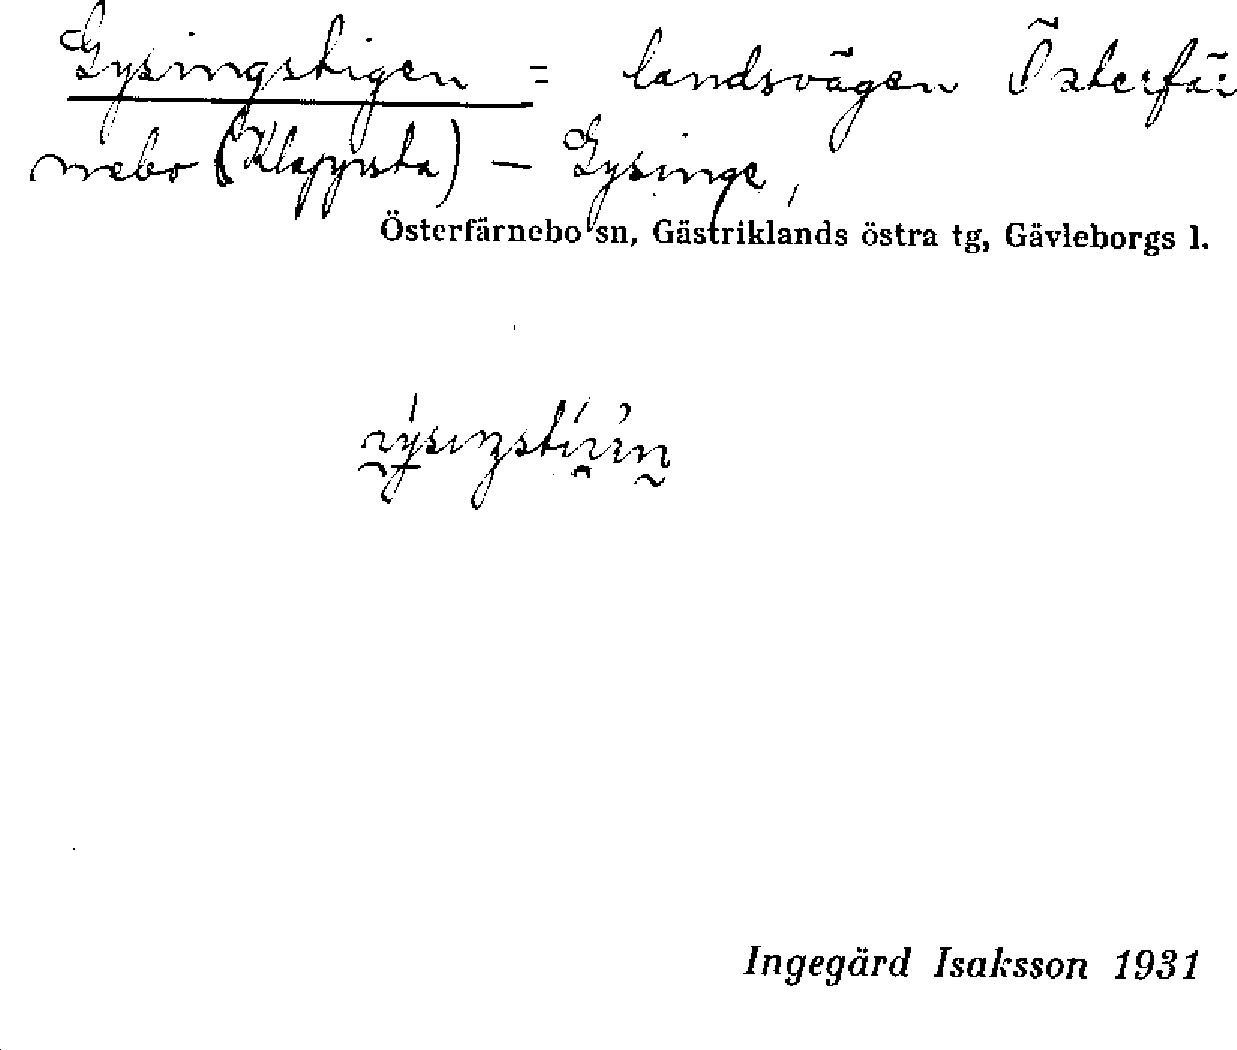 Gysingstigen = landsvägen Österfär-
nebo (Klappsta) — Gysinge,
Österfärnebo sn, Gästriklands östra tg, Gävleborgs l.
Ingegärd Isaksson 1931